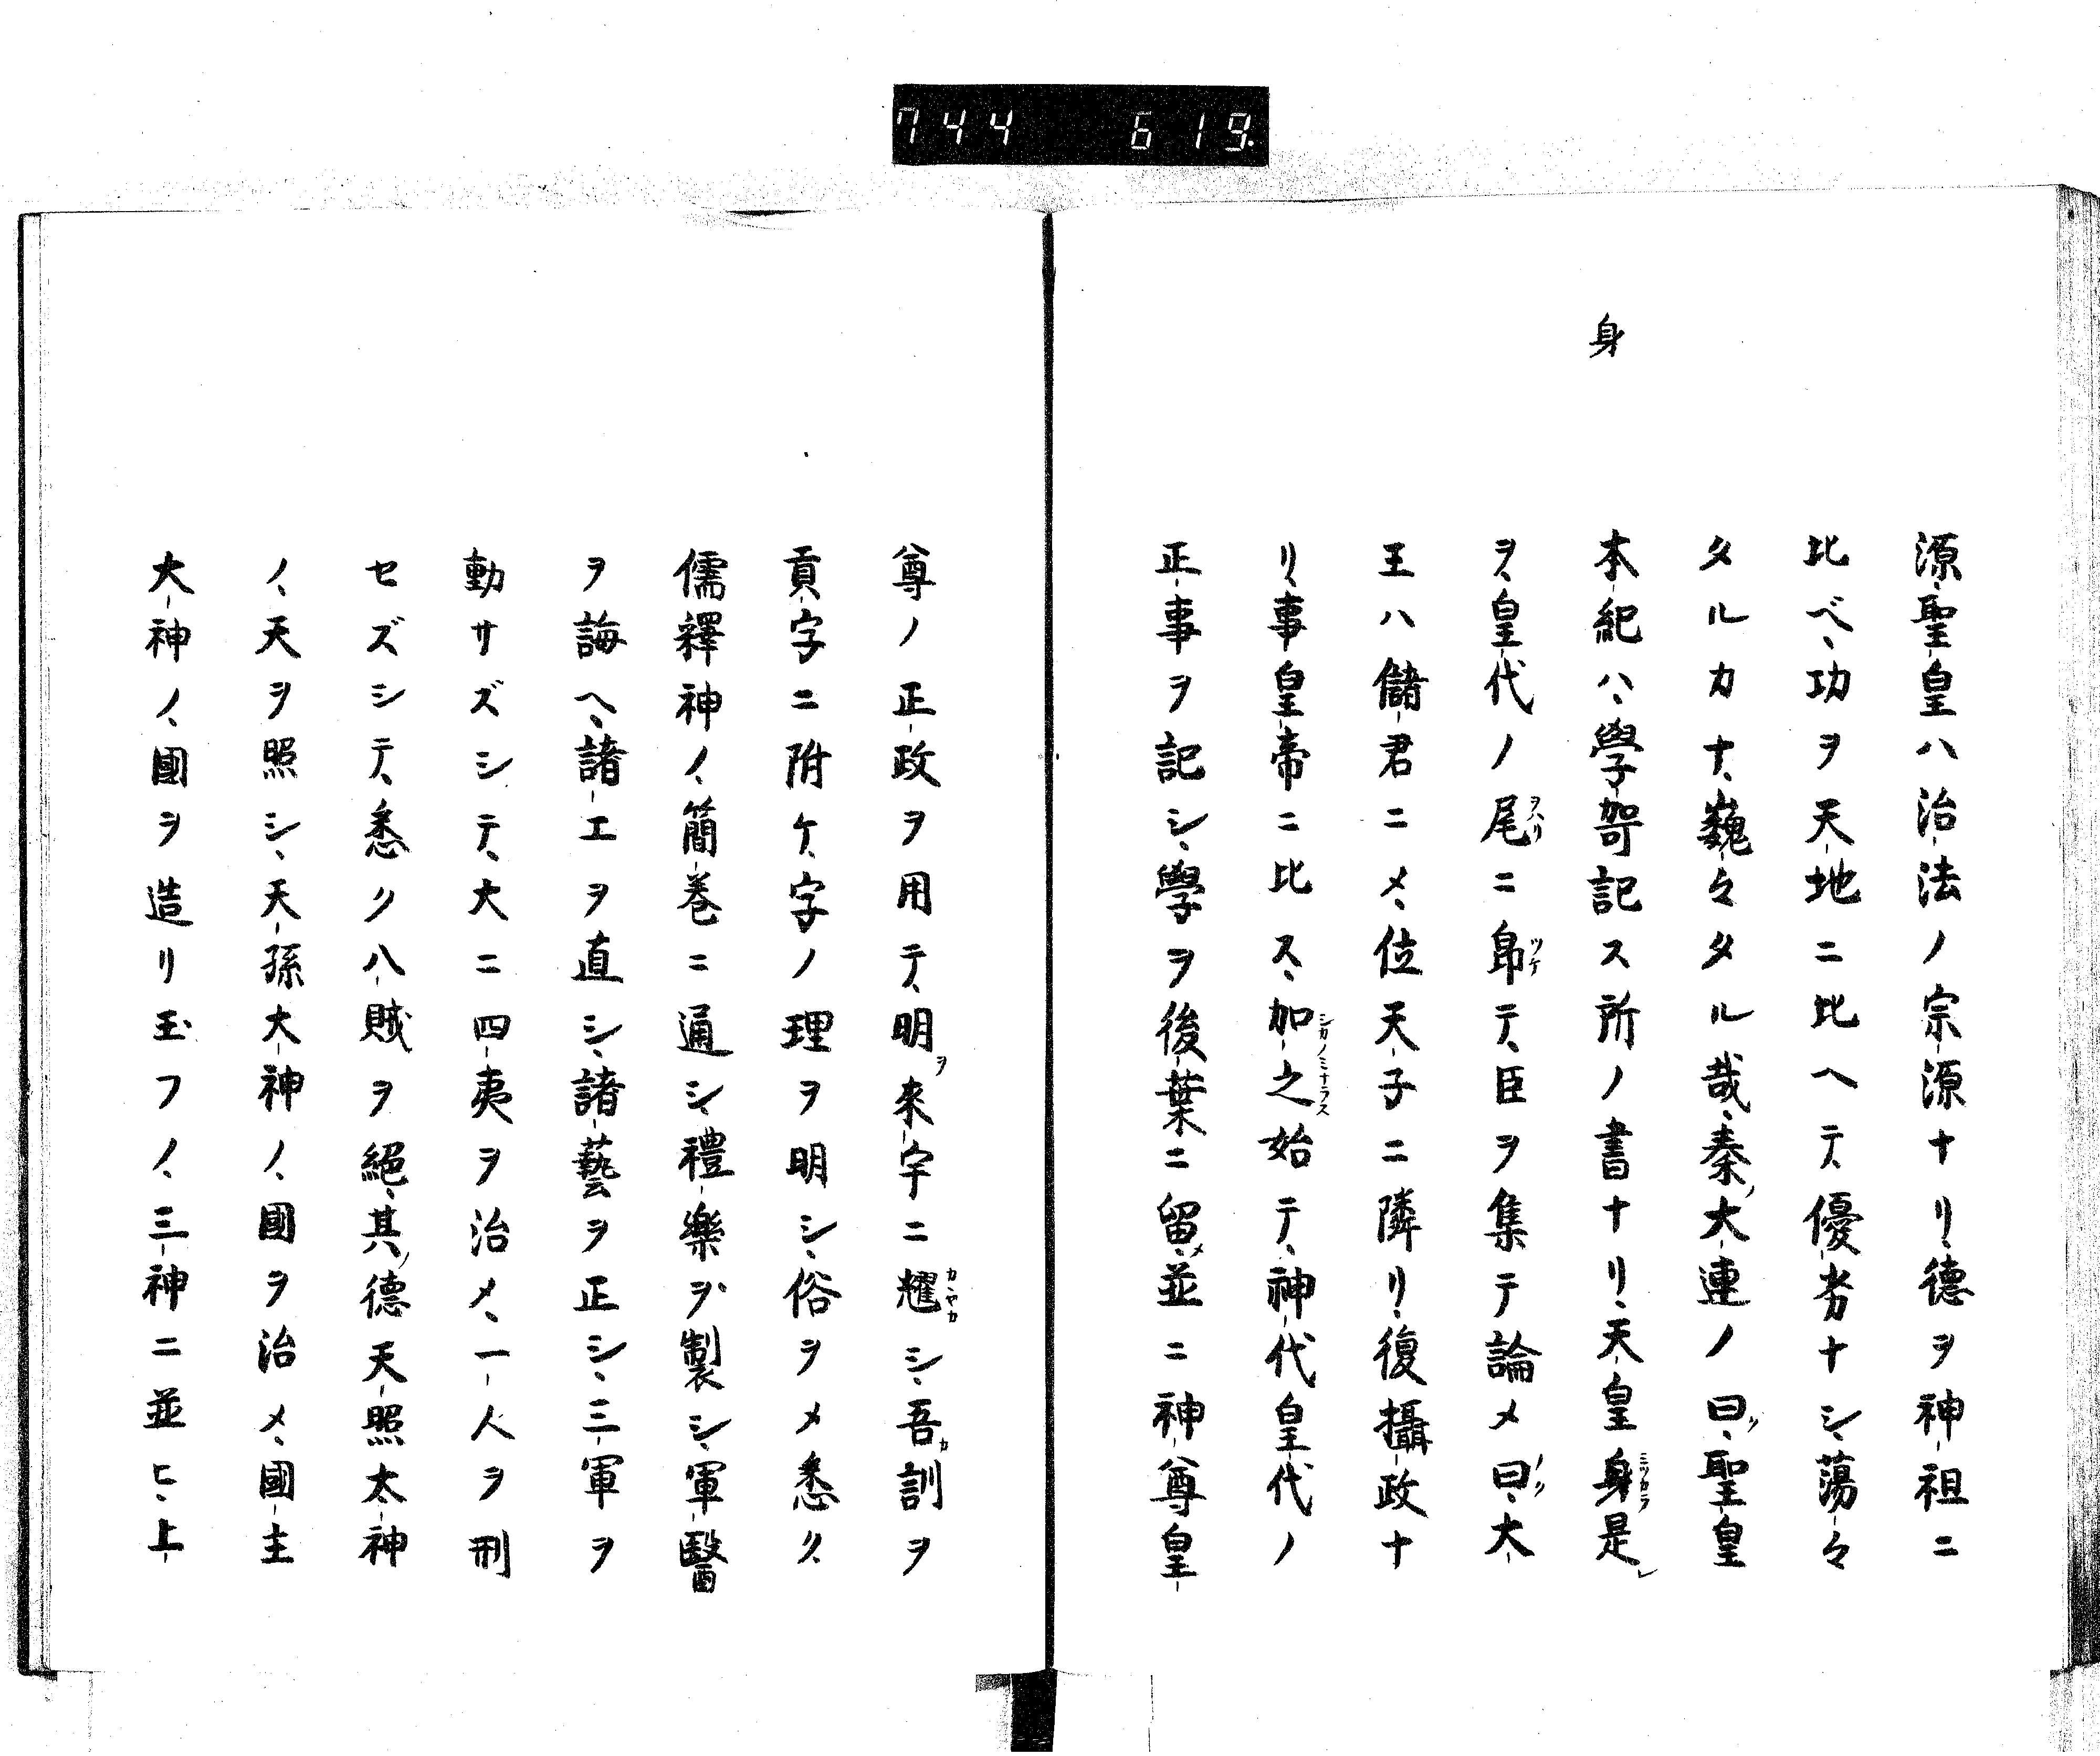 744 619.
身
源聖皇ハ治法ノ宗源ナリ、德ヲ神祖ニ
比ベ、功ヲ天地ニ比ヘテ、優劣ナシ、蕩々
タルカナ、巍々タル哉、秦ノ大連ノ曰ク、聖皇
本紀ハ、學哿記ス所ノ書ナリ、天皇身ミツカラ是レ
ヲ、皇代ノ尾ヲハリニ帛ツケテ、臣ヲ集テ論メ曰ノク、大
王ハ儲君ニメ、位天子ニ隣リ、復攝政ナ
リ、事皇帝ニ比ス、加之シカノミナラス始テ、神代皇代ノ
正事ヲ記シ、學ヲ後葉ニ留メ、並ニ神尊皇
尊ノ正政ヲ用テ、明ヲ來宇ニ耀カヽヤカシ、吾カ訓ヲ
貢字ニ附ケ、字ノ理ヲ明シ、俗ヲメ悉ク、
儒釋神ノ、簡巻ニ通シ、禮樂ヲ製シ、軍醫
ヲ誨ヘ、諸工ヲ直シ、諸藝ヲ正シ、三軍ヲ
動サズシテ、大ニ四夷ヲ治メ、一人ヲ刑
セズシテ、悉ク八賊ヲ絕、其ノ德天照太神
ノ、天ヲ照シ、天孫大神ノ、國ヲ治メ、國主
大神ノ、國ヲ造リ玉フノ、三神ニ並ヒ、上